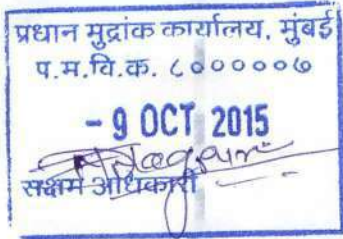 प्रधान मुद्रांक कार्यालय, मुंबई
प.म.वि.क. ८००००७
- 9 OCT 2015
सक्षम अधिकारी